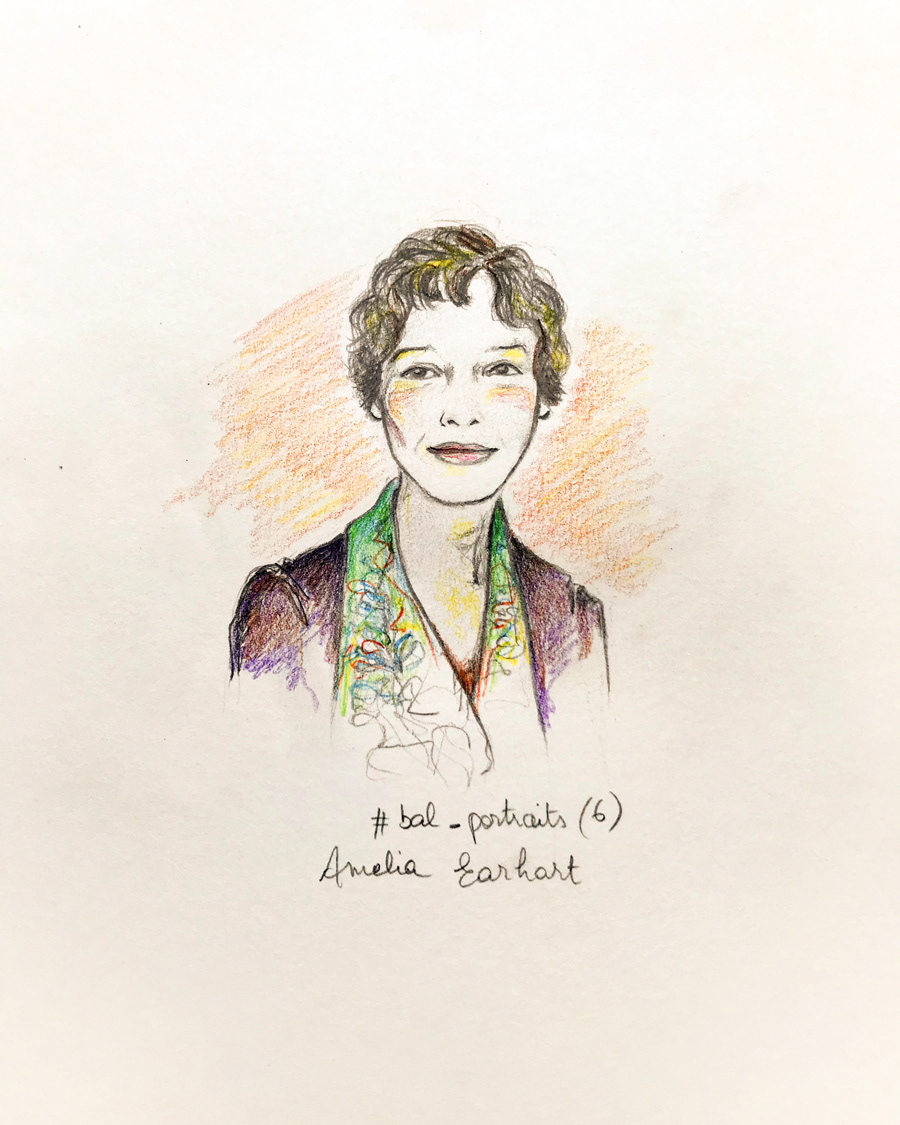 # bal_portraits (6)
Amelia Earhart